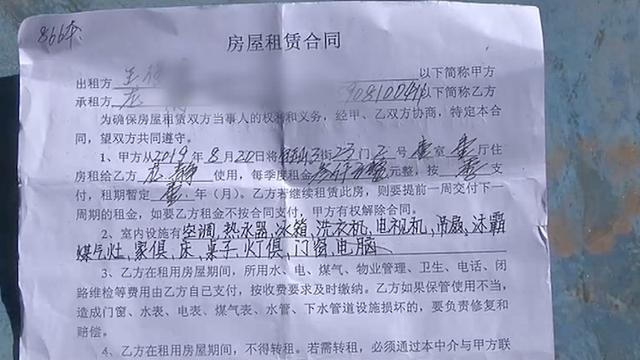 房屋租赁合同
出租方 王 以下简称甲方
承租方 龙 以下简称乙方
为确保房屋租赁双方当事人的权利和义务，经甲、乙双方协商，特定本合
同，望双方共同遵守。
1、甲方从2019年8月20日将 街23门2号壹室壹厅住
房租给乙方 使用，每季度租金 元整，按 支
付，租期暂定壹年（月）。乙方若继续租赁此房，则要提前一周交付下一
周期的租金，如要乙方租金不按合同支付，甲方有权解除合同。
2、室内设施有空调、热水器、冰箱、洗衣机、电视机、吊扇、沐霸
煤气灶、家俱、床、桌子、灯俱、门窗、电脑
3、乙方在租用房屋期间，所用水、电、煤气、物业管理、卫生、电话、闭
路维检等费用由乙方自己支付，按收费要求及时缴纳。乙方如果保管使用不当，
造成门窗、水表、电表、煤气表、水管、下水管道设施损坏的，要负责修复和
赔偿。
4、乙方在租用房屋期间，不得转租。若需转租，必须通过本中介与甲方联